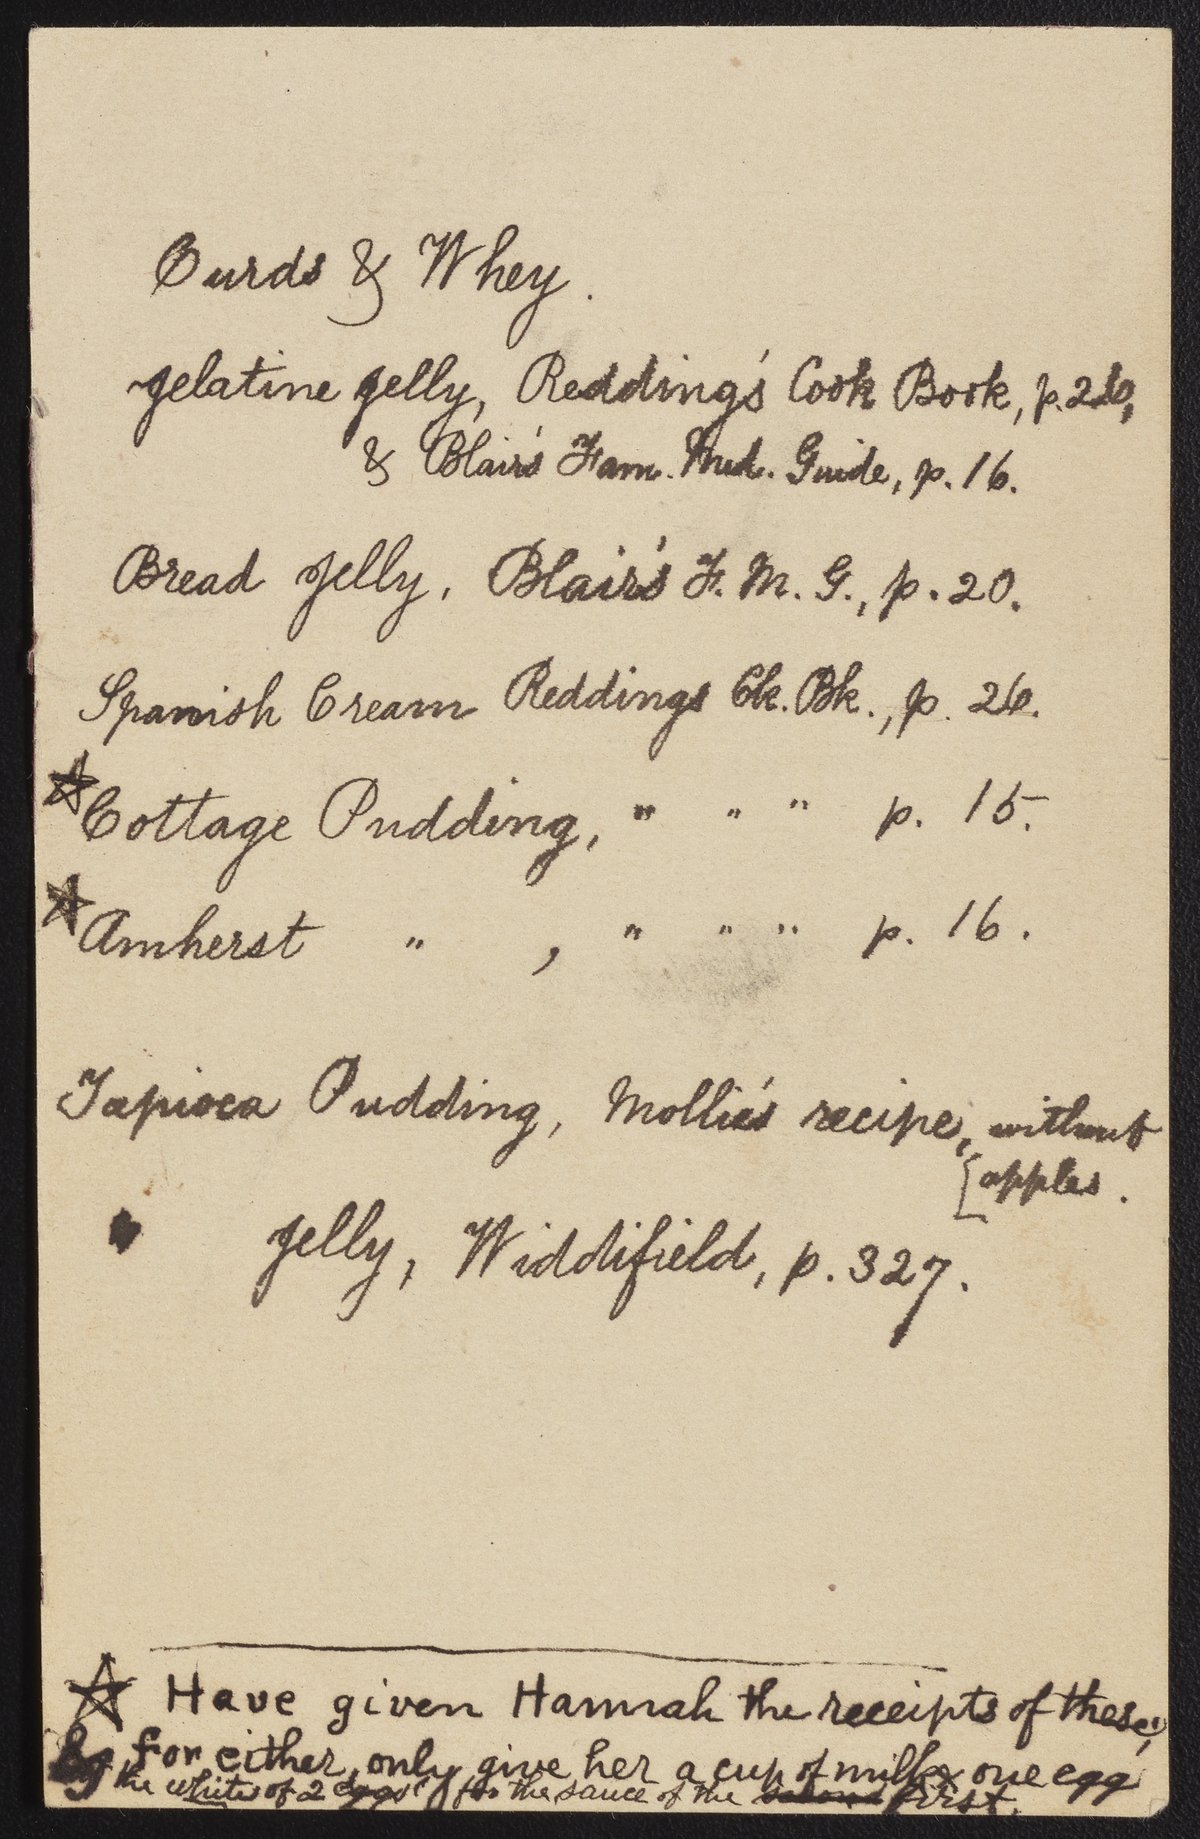 Curds & Whey.
Gelatine Jelly, Redding's Cook Book, p. 26,
& Blair's Fam. Med. Guide, p. 16.
Bread Jelly, Blair's F. M. G., p. 20.
Spanish Cream Reddings Ck. Bk., p. 26.
☆ Cottage Pudding, " " " p. 15.
☆ Amherst " , " " " p. 16.
Tapioca Pudding, Mollie's recipe, without
[apples.
" Jelly, Widdifield, p. 327.
☆ Have given Hannah the receipts of these;
for either, only give her a cup of milk, one egg
the white of 2 eggs for the sauce of the second first.